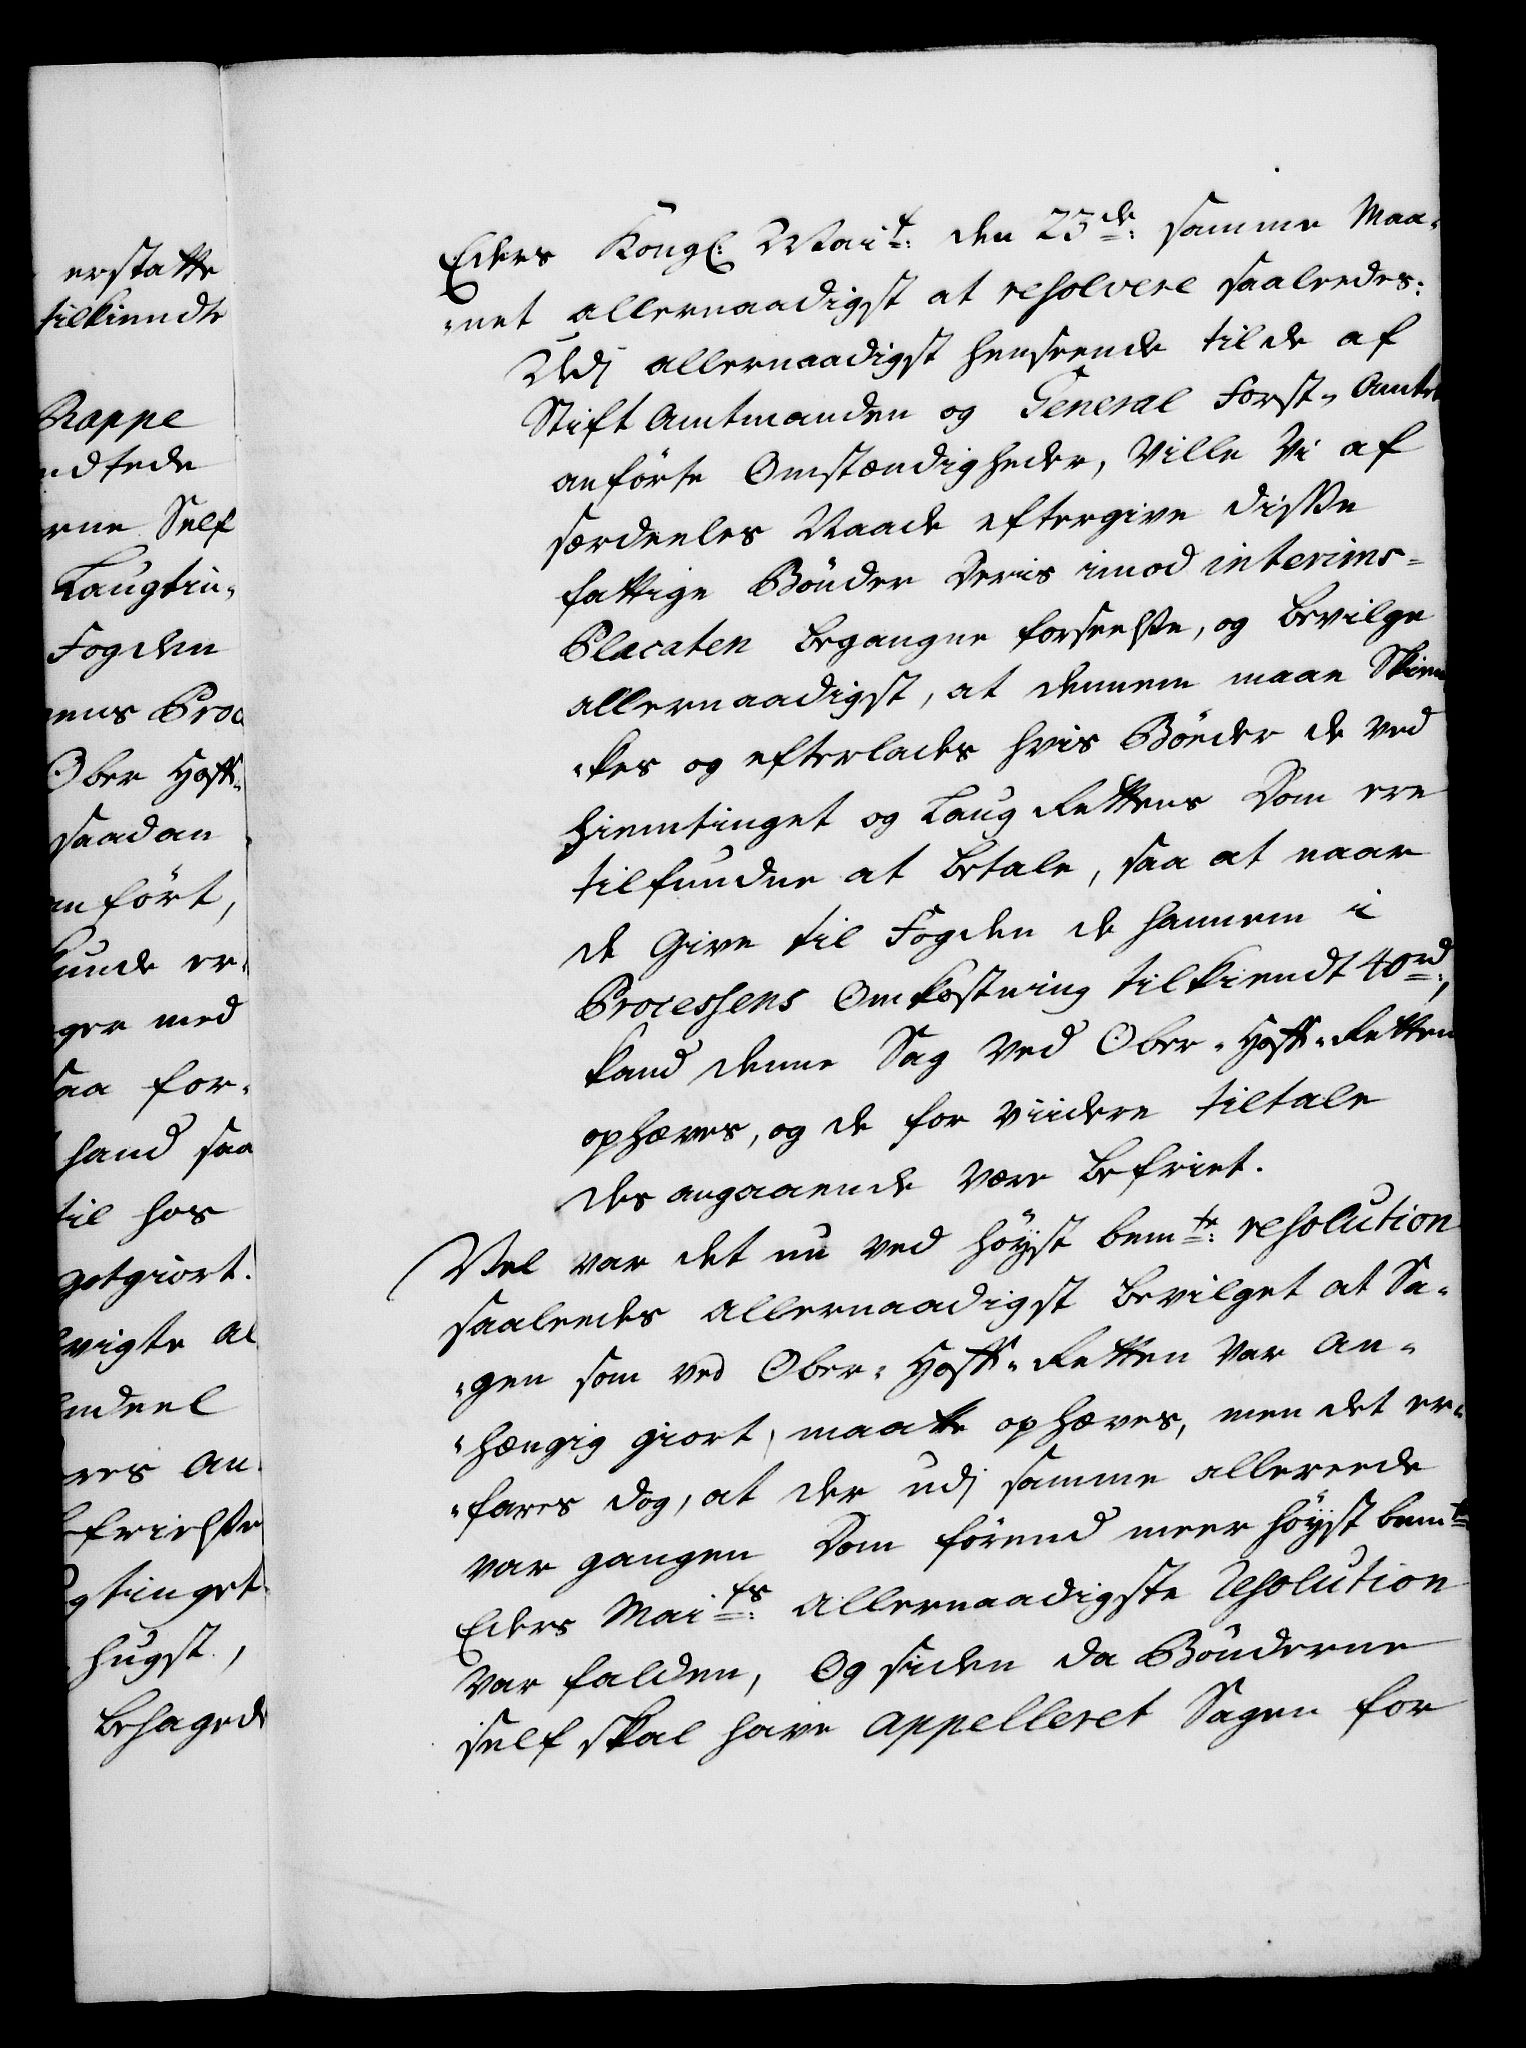 erstatte
tilkiendte
Rappe
ndtede
rne Self
Laugtin-
Fogden
ens Proc
Ober Hoff-
saadan
nført,
kunde er-
ger med
saa for-
hand saa
til hos
gotgiort.
vigte al
ndeel
res an-
gtinget
hugst,
behagede
Eders Kongl: Mait: den 23de: samme Maa-
-net allernaadigst at resolvere saaledes:
Udj allernaadigst henseende til de af
Stift Amtmanden og General Forst-Amtet
anførte Omstændigheder, Ville Vi af
særdeeles Naade eftergive disse
fattige Bønder deris imod interims-
Placaten begangne forseelse, og bevilge
allernaadigst, at dennem maae Skien
-kes og efterlades hvis Bøder de ved
Hiemtinget og Laug Rettens Dom ere
tilfundne at betale, saa at naar
de Give til Fogden de hannem i
Processens Omkostning tilkiendt 40rd:,
kand denne Sag ved Ober-Hoff-Retten
ophæves, og de for viidere tiltale
des angaaende være befriet.
Vel var det nu ved høyst bemte: resolution
saaledes allernaadigst bevilget at Sa-
-gen som ved Ober-Hoff-Retten var an-
-hængig giort, maatte ophæves, men det er-
-fares dog, at der udj samme allereede
var gangen Dom førend meer høyst bemte
Eders Maits: allernaadigste Resolution
var falden, Og siden da Bønderne
self skal have appelleret Sagen for